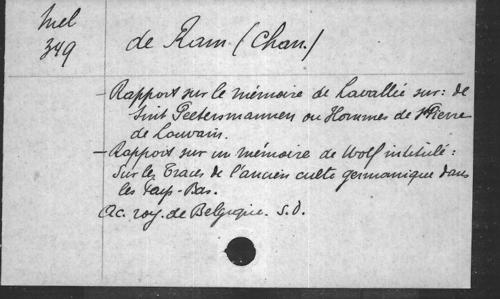 Mel
349
de Ram. (Chan.)
- Rapport sur le mémoire de Lavallée sur: de
Sint Peetersmannen ou Hommes de St Pierre
de Louvain.
- Rapport sur un mémoire de Wolf intitulé:
Sur les traces de l'ancien culte germanique dans
les Pays-Bas.
Ac. roy. de Belgique. S.D.